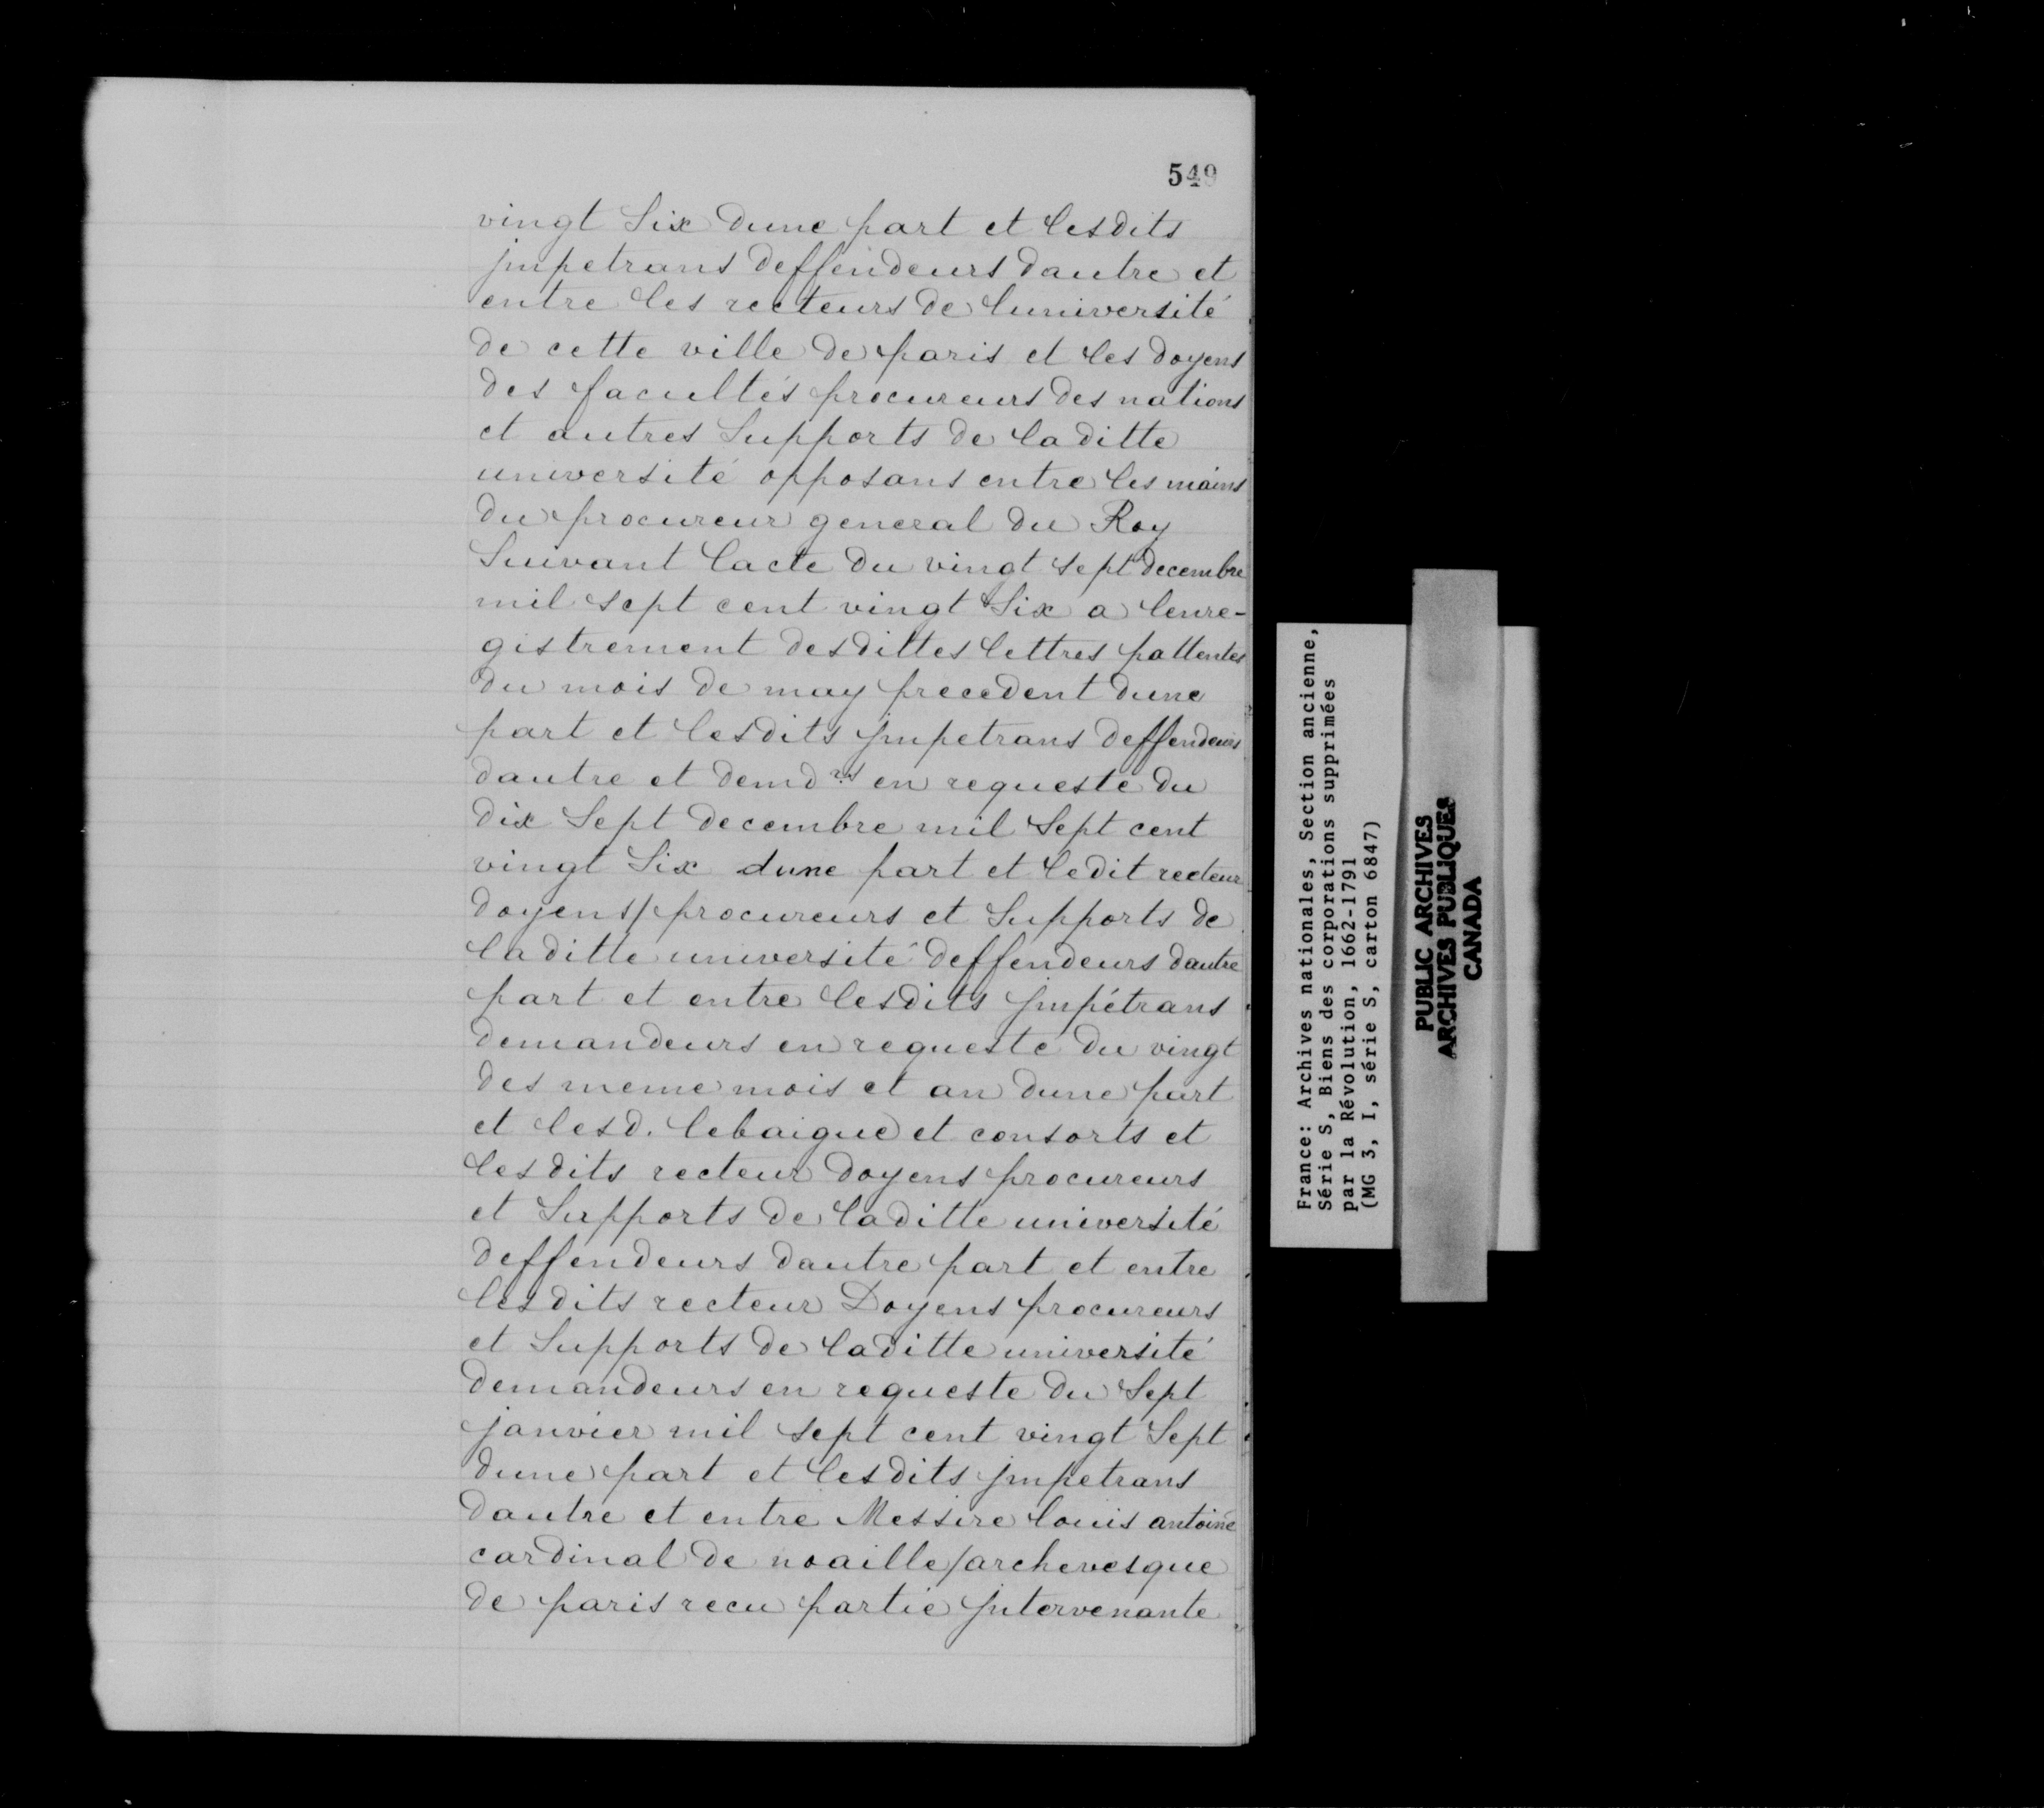 549
vingt Six dune part et lesdits
jmpetrans deffendeurs dautre et
entre les recteurs de luniversité
de cette ville de paris et les doyens
des facultés procureurs des nations
et autres Supports de laditte
université opposans entre les mains
du procureur general du Roy
Suivant lacte du vingt sept decembre
mil sept cent vingt Six a lenre-
gistrement desdittes lettres pattentes
du mois de may precedent dune
part et lesdits jmpetrans deffendeurs
dautre et demdrs en requeste du
dix Sept decembre mil Sept cent
vingt Six dune part et ledit recteur
doyens/procureurs et Supports de
laditte université deffendeurs dautre
part et entre lesdits jmpétrans
demandeurs en requeste du vingt
des meme mois et an dune part
et lesd. lebaigue et consorts et
lesdits recteur doyens procureurs
et Supports de laditte université
deffendeurs dautre part et entre
lesdits recteur Doyens procureurs
et Supports de laditte université
demandeurs en requeste du Sept
janvier mil sept cent vingt Sept
dune part et lesdits jmpetrans
dautre et entre Messire louis antoine
cardinal de noaille/archevesque
de paris recu partie jntervenante
France: Archives nationales, Section ancienne,
Série S, Biens des corporations supprimées
par la Révolution, 1662-1791
(MG 3, I, série S, carton 6847)
PUBLIC ARCHIVES
ARCHIVES PUBLIQUES
CANADA